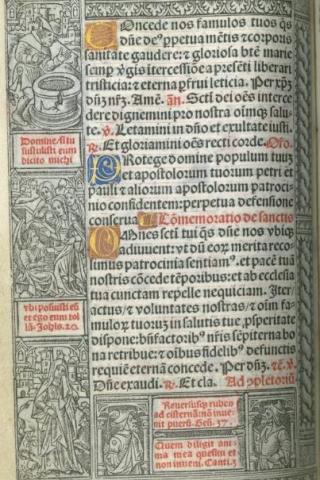 Concede nos famulos tuos q̄s
dn̄e de᷒ ꝑpetua mētis ⁊ corporis
sanitate gaudere: ⁊ gloriosa btē marie
semꝑ v̄gīs itercessiōe a preseti liberari
tristicia: ⁊ eterna ꝑfrui leticia. Per xp̄m
dn̄ȝ nr̄ȝ. Amē. añ. Sctī dei oēs interce
dere dignemini pro nostra oīmqȝ salu-
te. ꝟ. Letamini in dn̄o et exultate iusti.
℟. Et gloriamini oēs recti corde. Oro.
Protege domine populum tuuȝ
et apostolorum tuorum petri et
pauli ⁊ aliorum apostolorum patroci-
nio confidentem: perpetua defensione
conserua Cōmemoratio de sanctis
Omnes sctī tui q̄s dn̄e nos vbiqȝ
adiuuent: vt dū eoꝝ merita reco-
limus patrocinia sentiam᷒. et pacē tuā
nostris cōcede tēporibus: et ab ecclesia
tua cunctam repelle nequiciam. Iter/
actus/ ⁊ voluntates nostras/ ⁊ oīm fa-
muloꝝ tuorum ȝ in salutis tue ꝓsperitate
dispone: bn̄factoribꝰ nr̄is sēpiterna bo
na retribue: ⁊ oībus fidelibꝰ defunctis
requiē eternā concede. Per dn̄ȝ. ⁊ē. ꝟ.
Dn̄e exaudi. ℟. Et cla. Ad ꝯpletoriū
Domine si tu
sustulisti eum
dicito michi
vbi posuisti eū
et ego eum tol
lā. Johīs. 20.
Reuersusqȝ ruben
ad cisternā nō inue-
nit puerū. Geñ. 37.
Quem diligit ani-
ma mea quesiui et
non inueni. Canti. 3